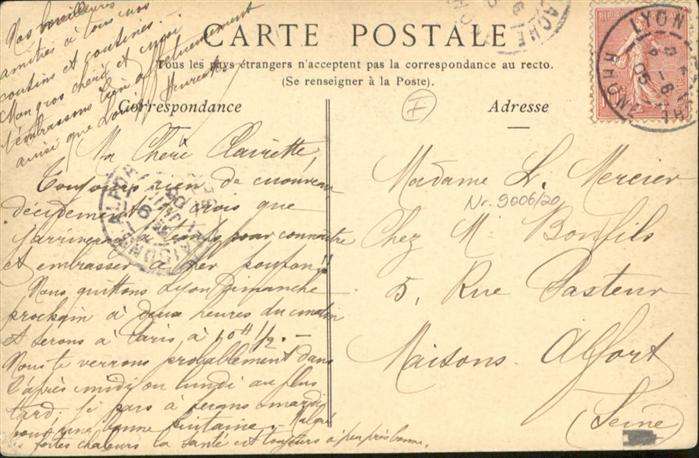 CARTE POSTALE
Tous les pays étrangers n'acceptent pas la correspondance au recto.
(Se renseigner à la Poste).
Correspondance
Adresse
Ma Chère Clairette
Toujours rien de nouveau
décidément crois que
j'arriverai pour connaître
et embrasser cher poupon!!
Nous quittons Lyon Dimanche
prochain à deux heures du matin
et serons à Paris, à 10H 1/2. -
Nous te verrons probablement dans
l'après midi ou lundi au plus
tard. Je pars à mardi
pour une bonne Malgré
les fortes chaleurs la santé est toujours à peu près bonne.
Vos meilleures
amitiés à tous nos
cousins et cousines.
Mon gros chéri et moi
t'embrassons bien affectueusement
ainsi que
Madame A. Mercier
Nr. 9006/20
Chez M. Bonfils
5, Rue Pasteur
Maisons Alfort
(Seine)
LYON
RHONE